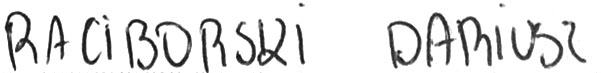 RACIBORSKI DARIUSZ